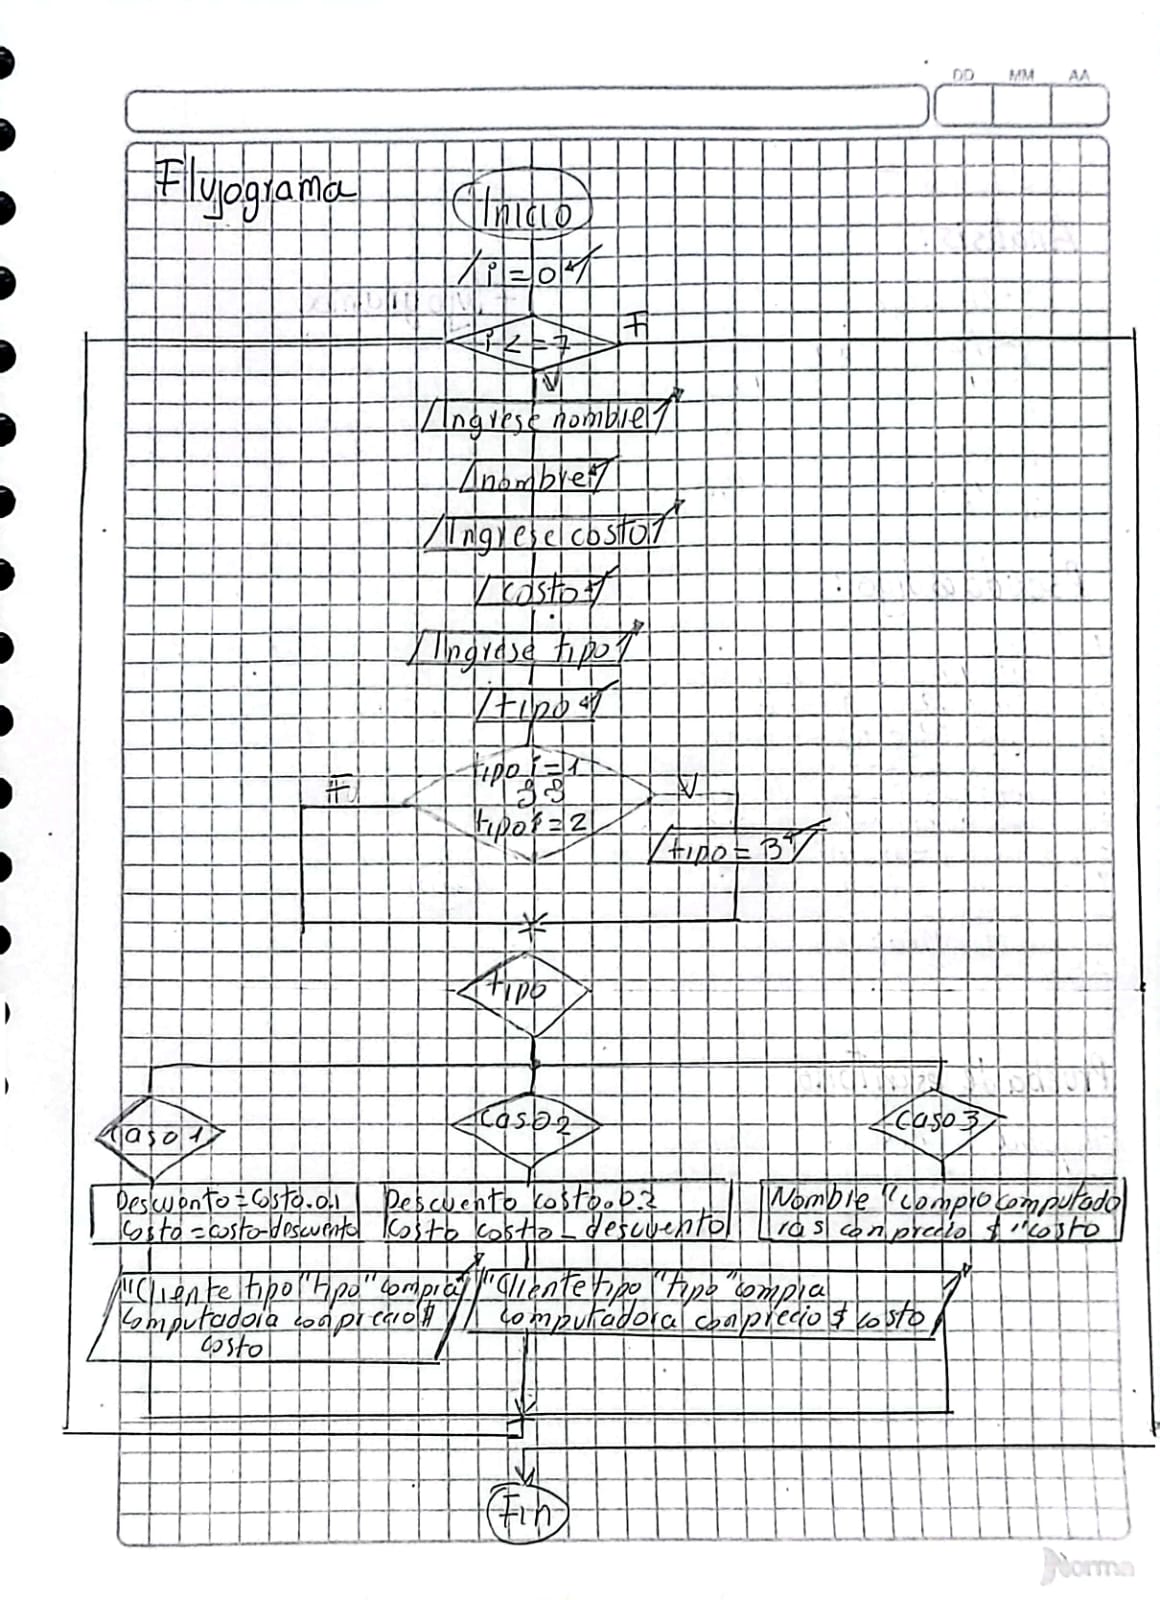 DD MM AA
Flujograma
Inicio
i = 0
i <= 7
F
V
Ingrese nombre
nombre
Ingrese costo
costo
Ingrese tipo
tipo
tipo != 1
&&
tipo != 2
F
V
tipo = 3
tipo
Caso 1
Caso 2
Caso 3
Descuonto = Costo.0.1
Costo = costo-descuento
Descuento costo.0.2
Costo costo - descuento
Nombre "compro computado
ras con precio $ "costo
"Cliente tipo "tipo" compra
computadora con precio $
costo
"Cliente tipo "tipo" compra
computadora con precio $ costo
Fin
Norma